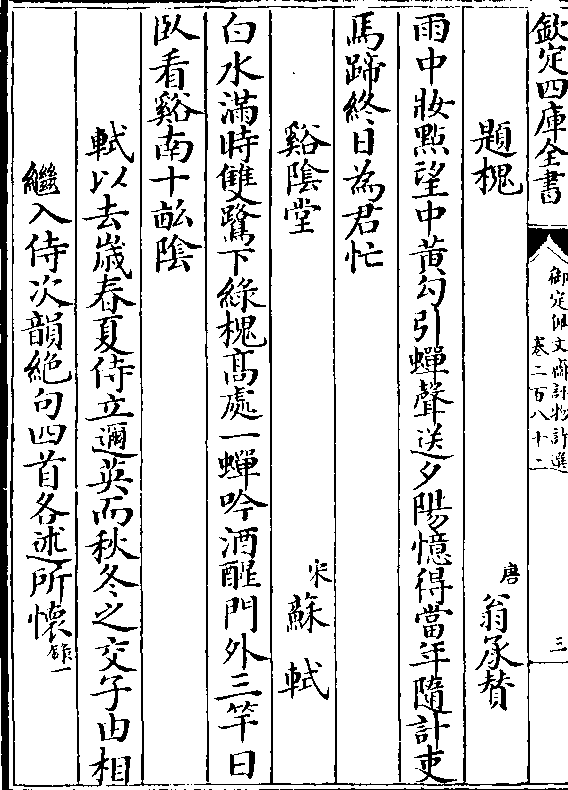 欽定四庫全書
御定佩文齋詠物詩選
卷二百八十二
三
題槐
唐 翁承贊
雨中妝點望中黃勾引蟬聲送夕陽憶得當年隨計吏
馬蹄終日為君忙
谿陰堂
宋 蘇軾
白水滿時雙鷺下綠槐髙處一蟬吟酒醒門外三竿日
臥看谿南十畝陰
軾以去歲春夏侍立邇英而秋冬之交子由相
繼入侍次韻絶句四首各述所懷錄一